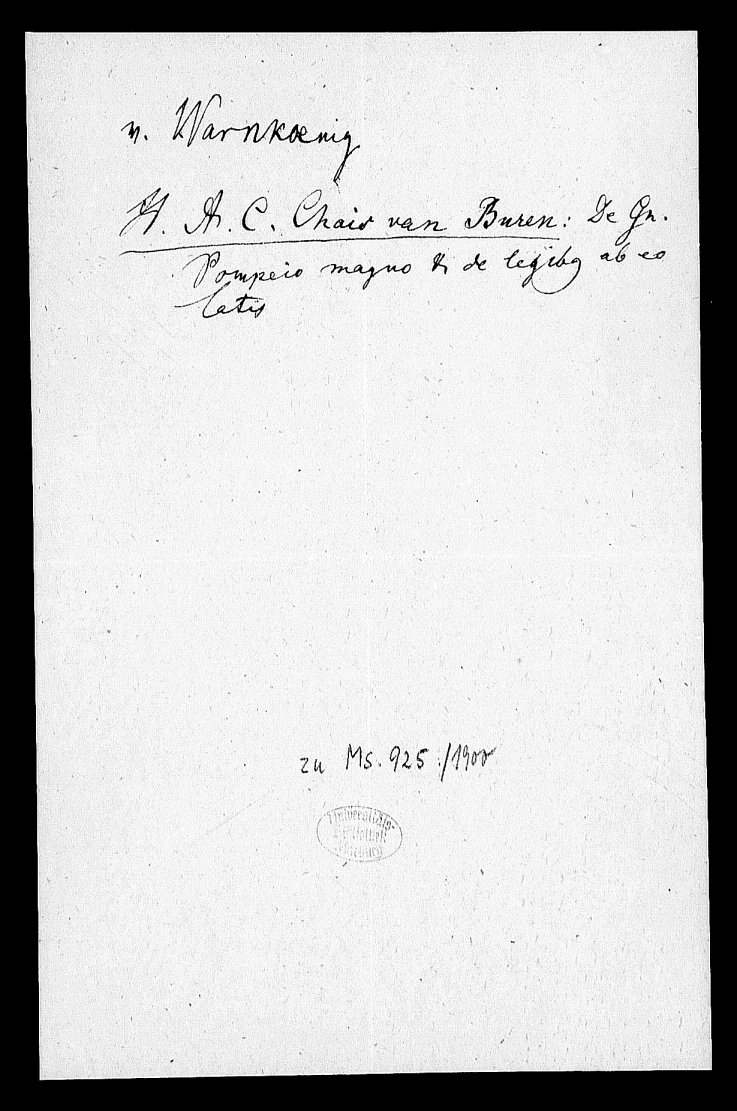 v. Warnkoenig
H. A. C. Chais van Buren: De Gn.
Pompeio magno & de legibq ab eo
latis
zu Ms. 925./1900
Universitäts-
Bibliothek